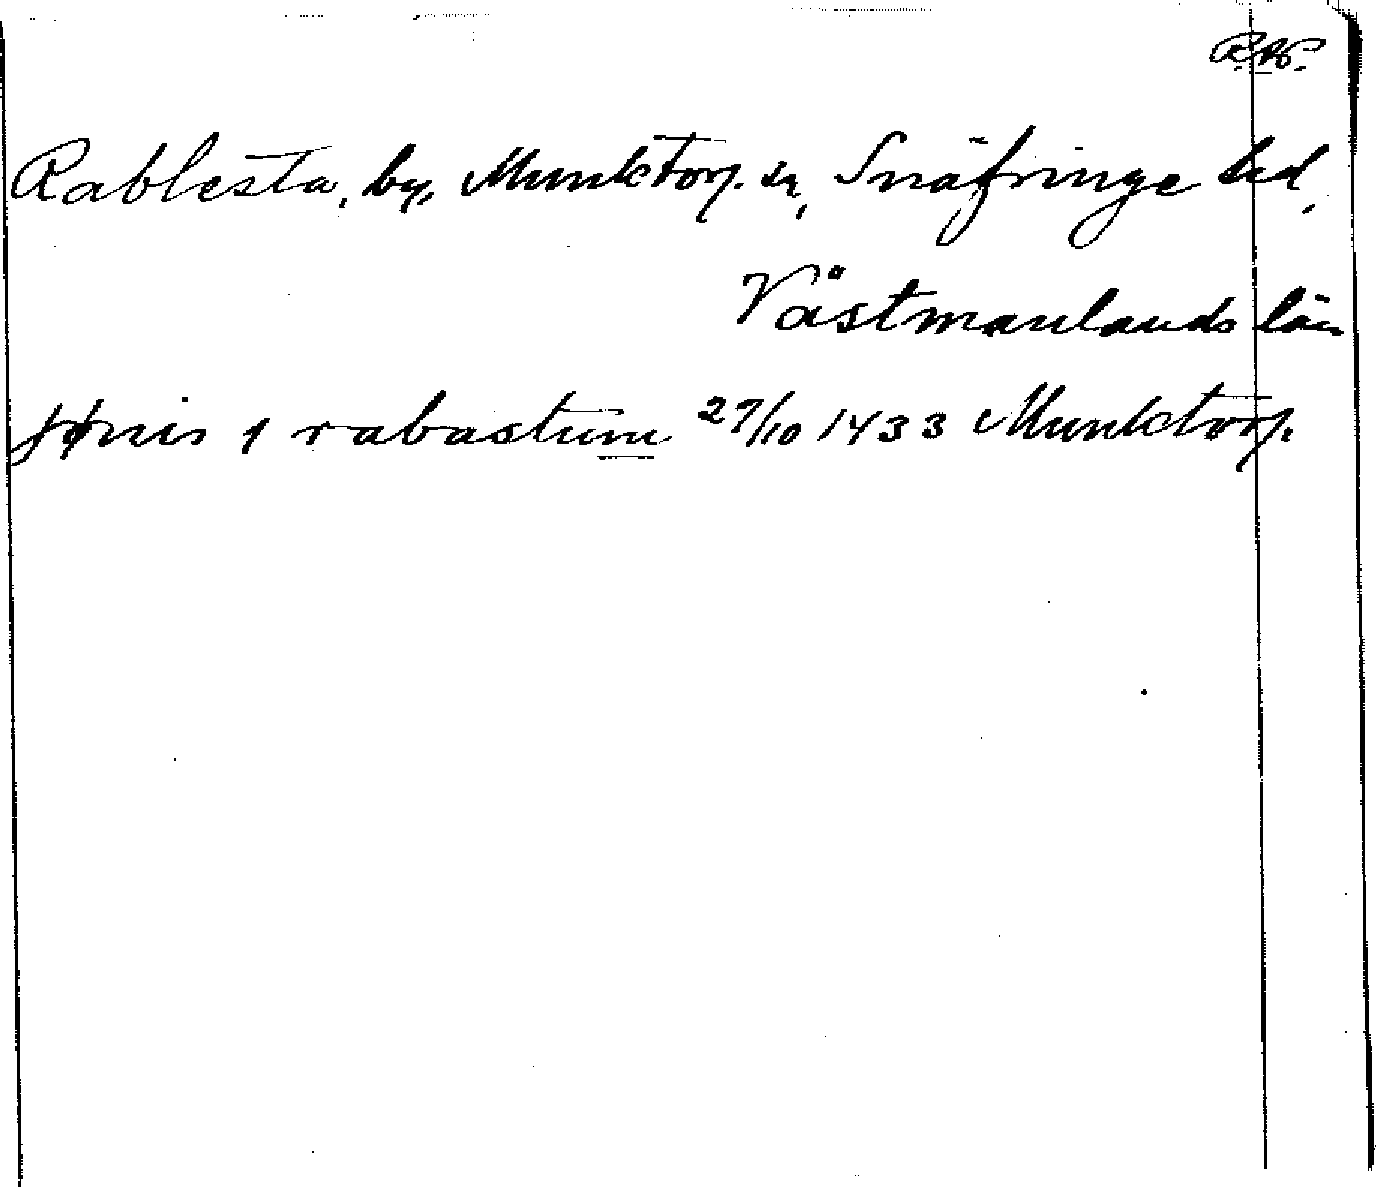 R.A.
Rablesta, by, Munktorp sn, Snäfringe hd,
Västmanlands län
jønis j rabastum 27/10 1433 Munktorp.